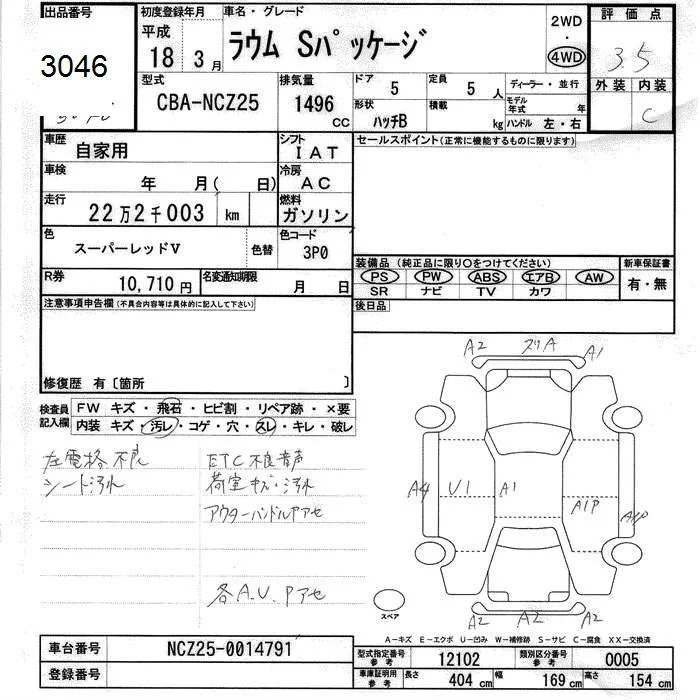 出品番号 初度登録年月 車名・グレード 2WD 評価点
3046 平成 18年 3月 ラウム Sパッケージ ・ 4WD 3.5
外装 内装
C
型式 CBA-NCZ25 排気量 1496 CC ドア 5 定員 5人 ディーラー・並行
形状 ハッチB 積載 kg モデル年式 年
ハンドル 左・右
車歴 自家用 シフト IAT セールスポイント(正常に機能するものに限ります)
車検 年 月( 日) 冷房 AC
走行 22万2千003 km 燃料 ガソリン
色 スーパーレッドV 色替 色コード 3P0
装備品(純正品に限り○をつけてください) 新車保証書
PS PW ABS エアB AW 有・無
SR ナビ TV カワ
R券 10,710円 名変通知期限 月 日
注意事項申告欄(不具合内容等は具体的に記入して下さい) 後日品
修復歴 有〔箇所 〕
検査員記入欄 FW キズ・飛石・ヒビ割・リペア跡・×要
内装 キズ・汚レ・コゲ・穴・スレ・キレ・破レ
左電格不良 ETC不良音声
シート汚れ 荷室キズ・汚れ
アウターハンドルPアセ
各A.U.Pアセ
A2 ズリA A1
A4 U1 A1 A1P A1P
スペア
A2 A2 A2
A-キズ E-エクボ U-凹み W-補修跡 S-サビ C-腐食 XX-交換済
車台番号 NCZ25-0014791
型式指定番号 参考 12102 類別区分番号 参考 0005
登録番号
車庫証明用 参考 長さ 404 cm 幅 169 cm 高さ 154 cm